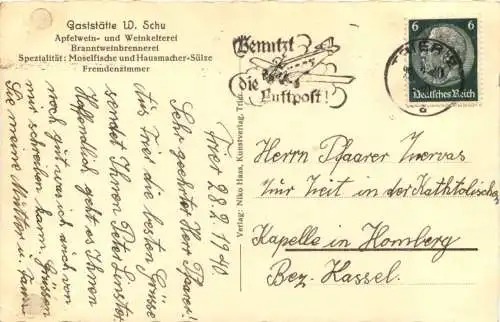 Gaststätte W. Schu
Apfelwein- und Weinkelterei
Branntweinbrennerei
Spezialität: Moselfische und Hausmacher-Sülze
Fremdenzimmer
Benutzt
die
Luftpost!
TRIER
6 6
Deutsches Reich
a
Verlag: Niko Haas, Kunstverlag, Trier
Trier 28.2.1940
Sehr geehrter Herr Pfarrer!
Aus Trier die besten Grüsse
sendet Ihnen Peter
Hoffendlich geht es Ihnen
noch gut was ich auch von
mir schreiben kann. Grüssen
Sie meine Mutter u. Fam.
Herrn Pfaarer Nervas
Zur Zeit in der Kathtolischen
Kapelle in Homberg
Bez. Kassel.